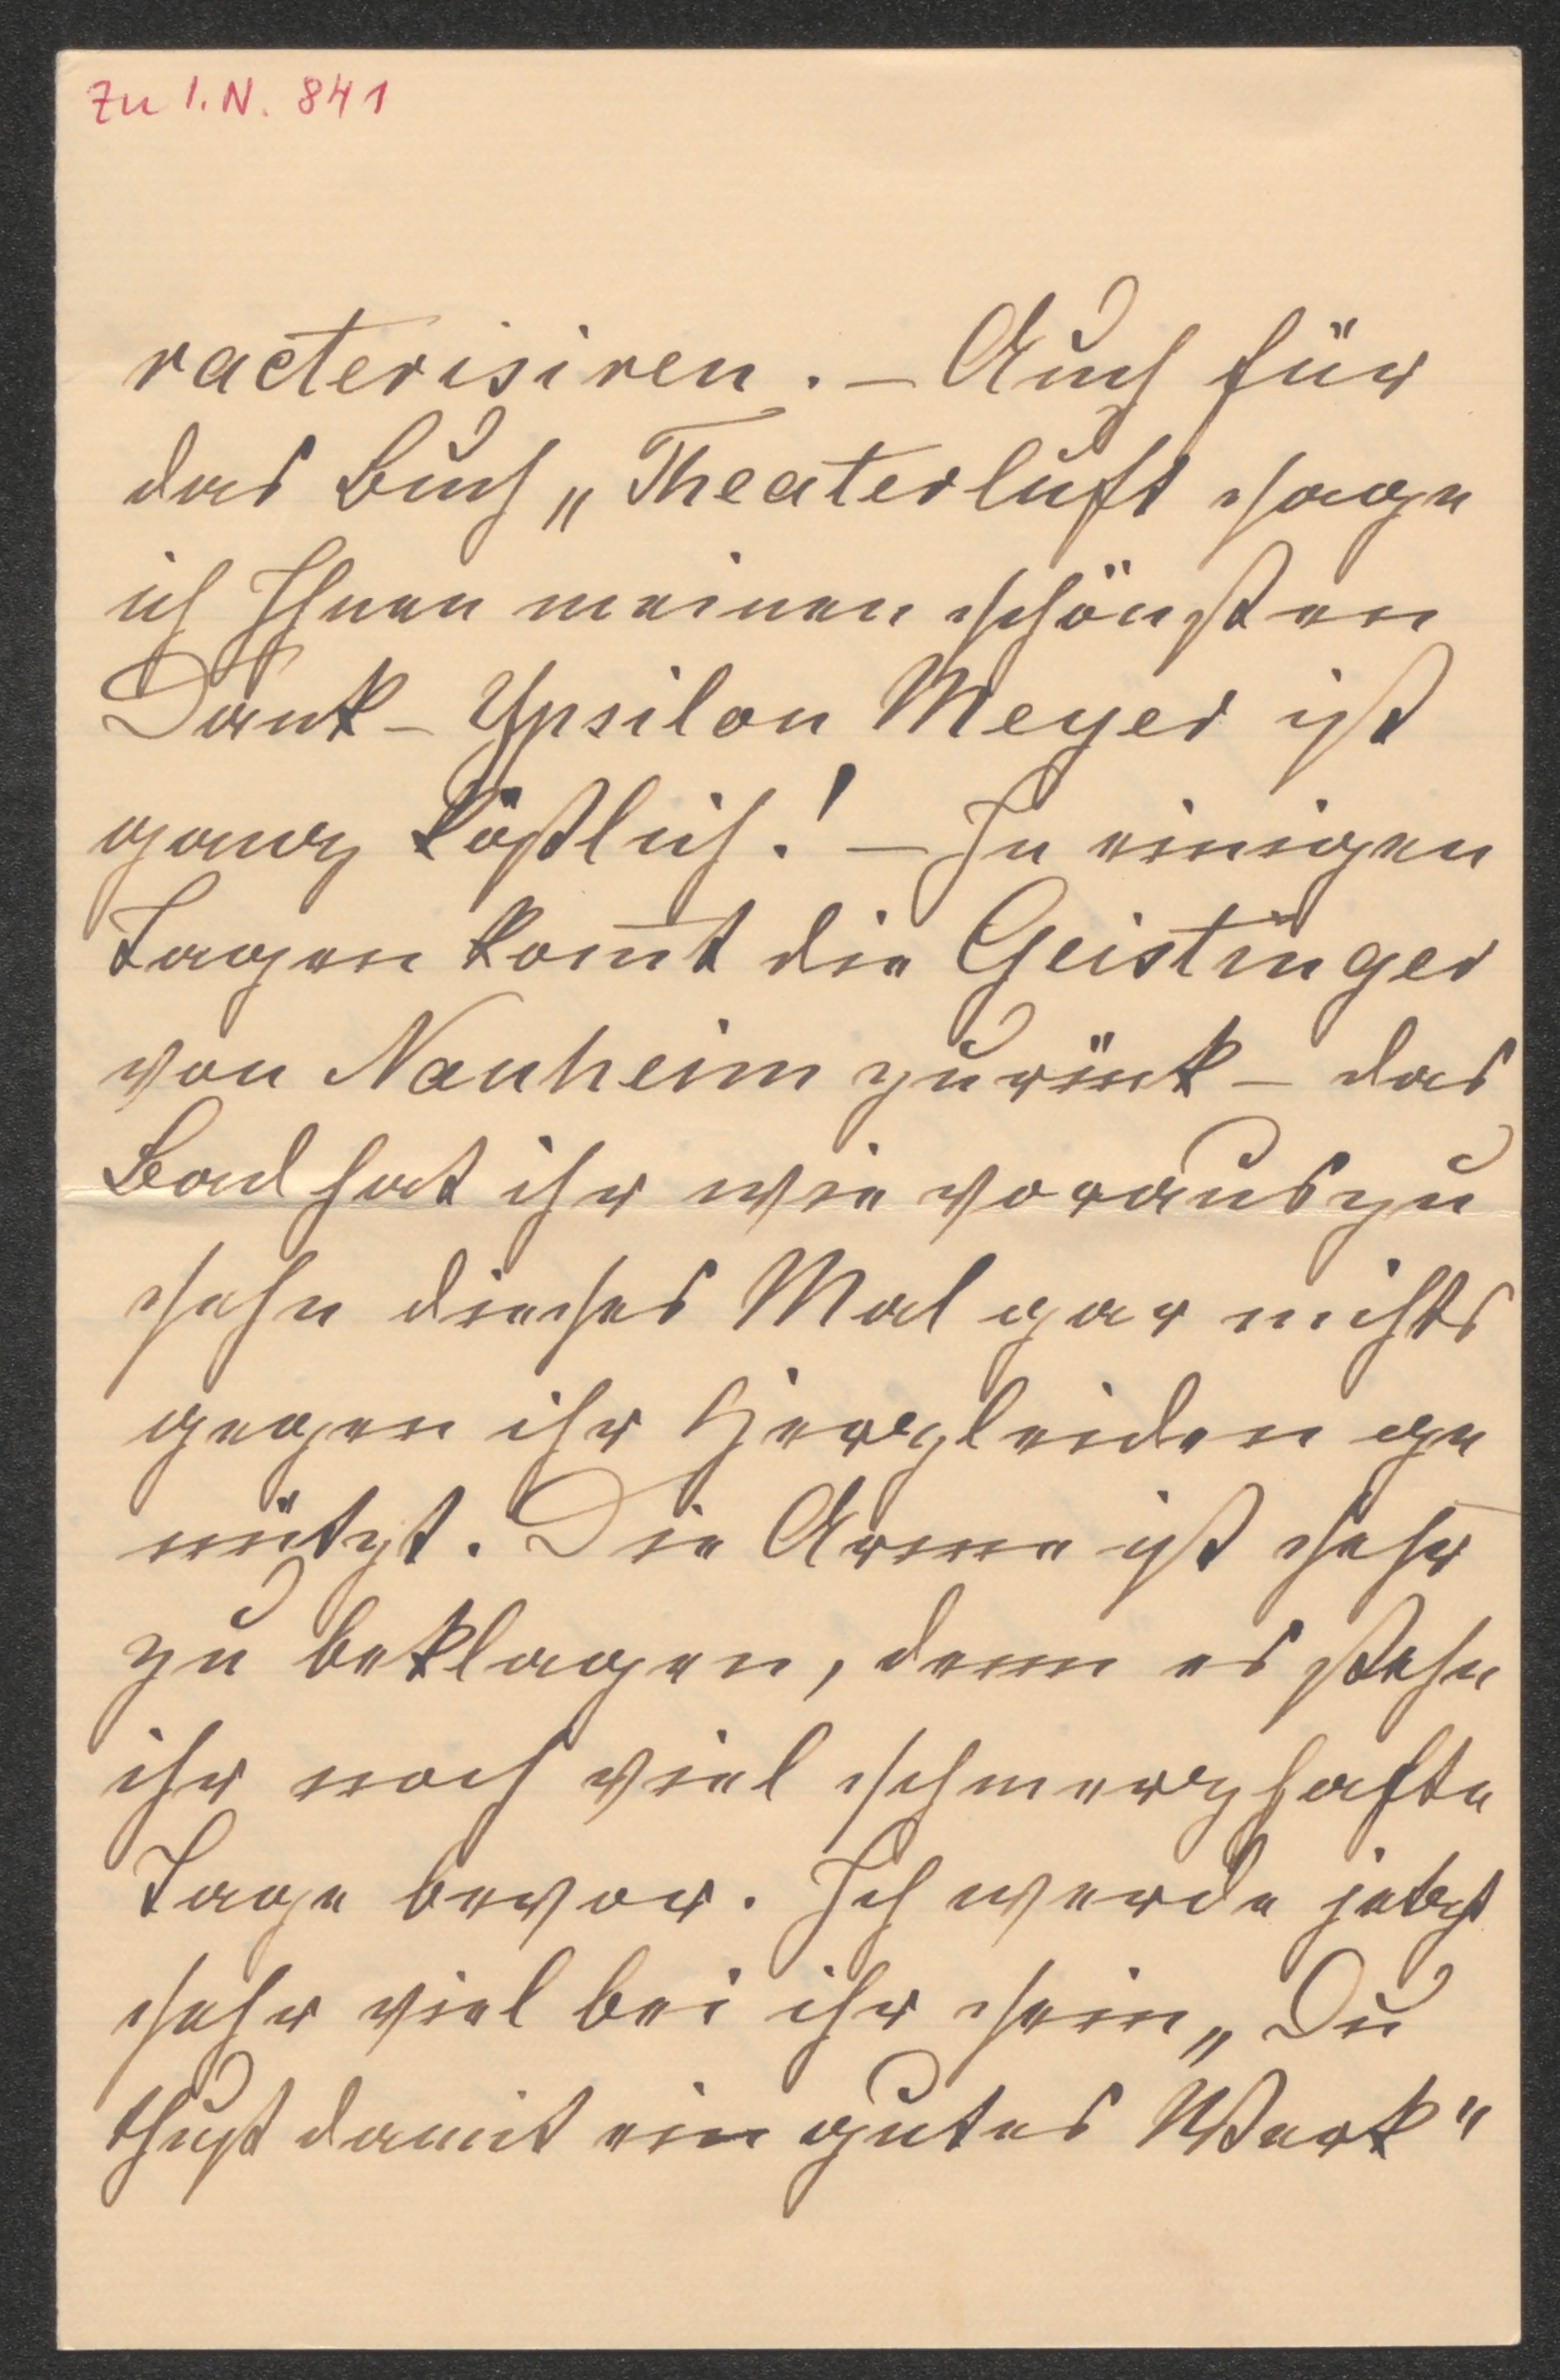 Zu I. N. 841
racterisiren. – Auch für
das Buch „Theaterluft sage
ich Ihnen meinen schönsten
Dank – Ypsilon Meyer ist
ganz köstlich! – In einigen
Tagen kom̄t die Geistinger
von Nauheim zurück – das
Bad hat ihr wie vorauszu
sehn dieses Mal gar nichts
gegen ihr Herzleiden ge
nützt. Die Arme ist sehr
zu beklagen, denn es stehn
ihr noch viel schmerzhafte
Tage bevor. Ich werde jetzt
sehr viel bei ihr sein „Du
thust damit ein gutes Werk"